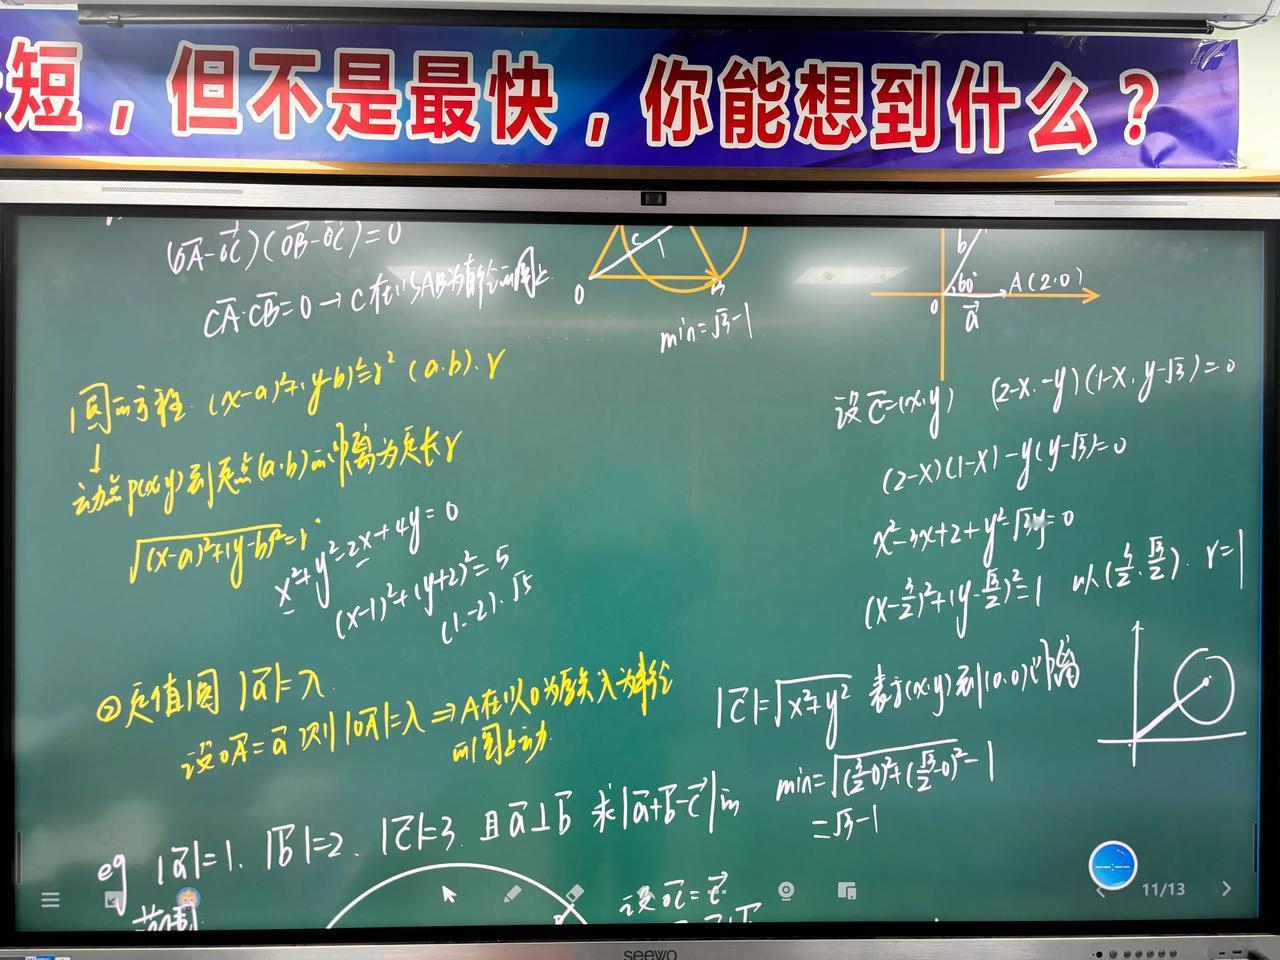 短，但不是最快，你能想到什么？
(OA-OC)(OB-OC)=0
CA·CB=0→C在以AB为直径的圆上
O
C
1
B
min=√3-1
b
60°
A(2·0)
0
a
圆的方程 (x-a)²+(y-b)²=r² (a·b)·r
↓
动点P(x·y)到定点(a·b)的距离为定长r
√(x-a)²+(y-b)²=r
x²+y²-2x+4y=0
(x-1)²+(y+2)²=5
(1·-2)·√5
设c=(x,y) (2-x,-y)(1-x,y-√3)=0
(2-x)(1-x)-y(y-√3)=0
x²-3x+2+y²-√3y=0
(x-3/2)²+(y-√3/2)²=1 以(3/2·√3/2)·r=1
②定值圆 |a|=λ
设OA=a 则|OA|=λ⇒A在以O为圆心λ为半径
的圆上动
|c|=√x²+y² 表示(x,y)到(0,0)的距离
min=√(3/2-0)²+(√3/2-0)²-1
=√3-1
eg |a|=1、|b|=2、|c|=3 且a⊥b 求|a+b-c|的
范围
设OC=c
11/13
seewo